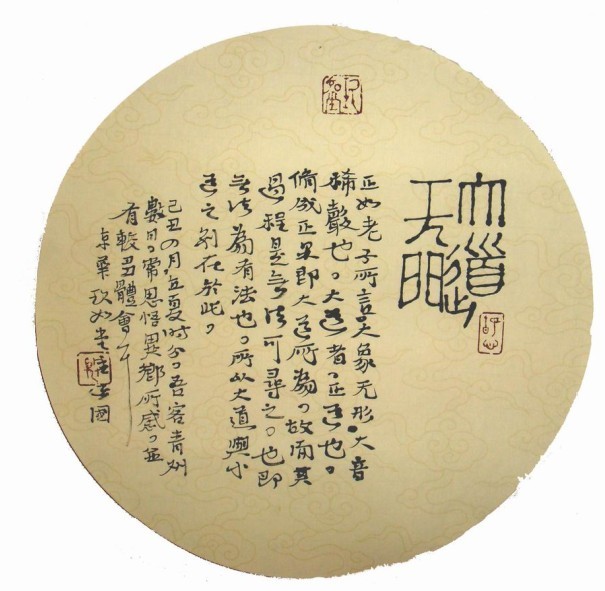 大道
正如老子所言大象无形。大音
稀聲也。大道者。正道也。
脩成正果即大道所為。故而其
過程是無法可尋之。也即
無法為有法也。所以大道與小
道之别在於此。
己丑四月立夏時分。吾客青州
數日。常思悟異鄉所感。並
有較多體會云